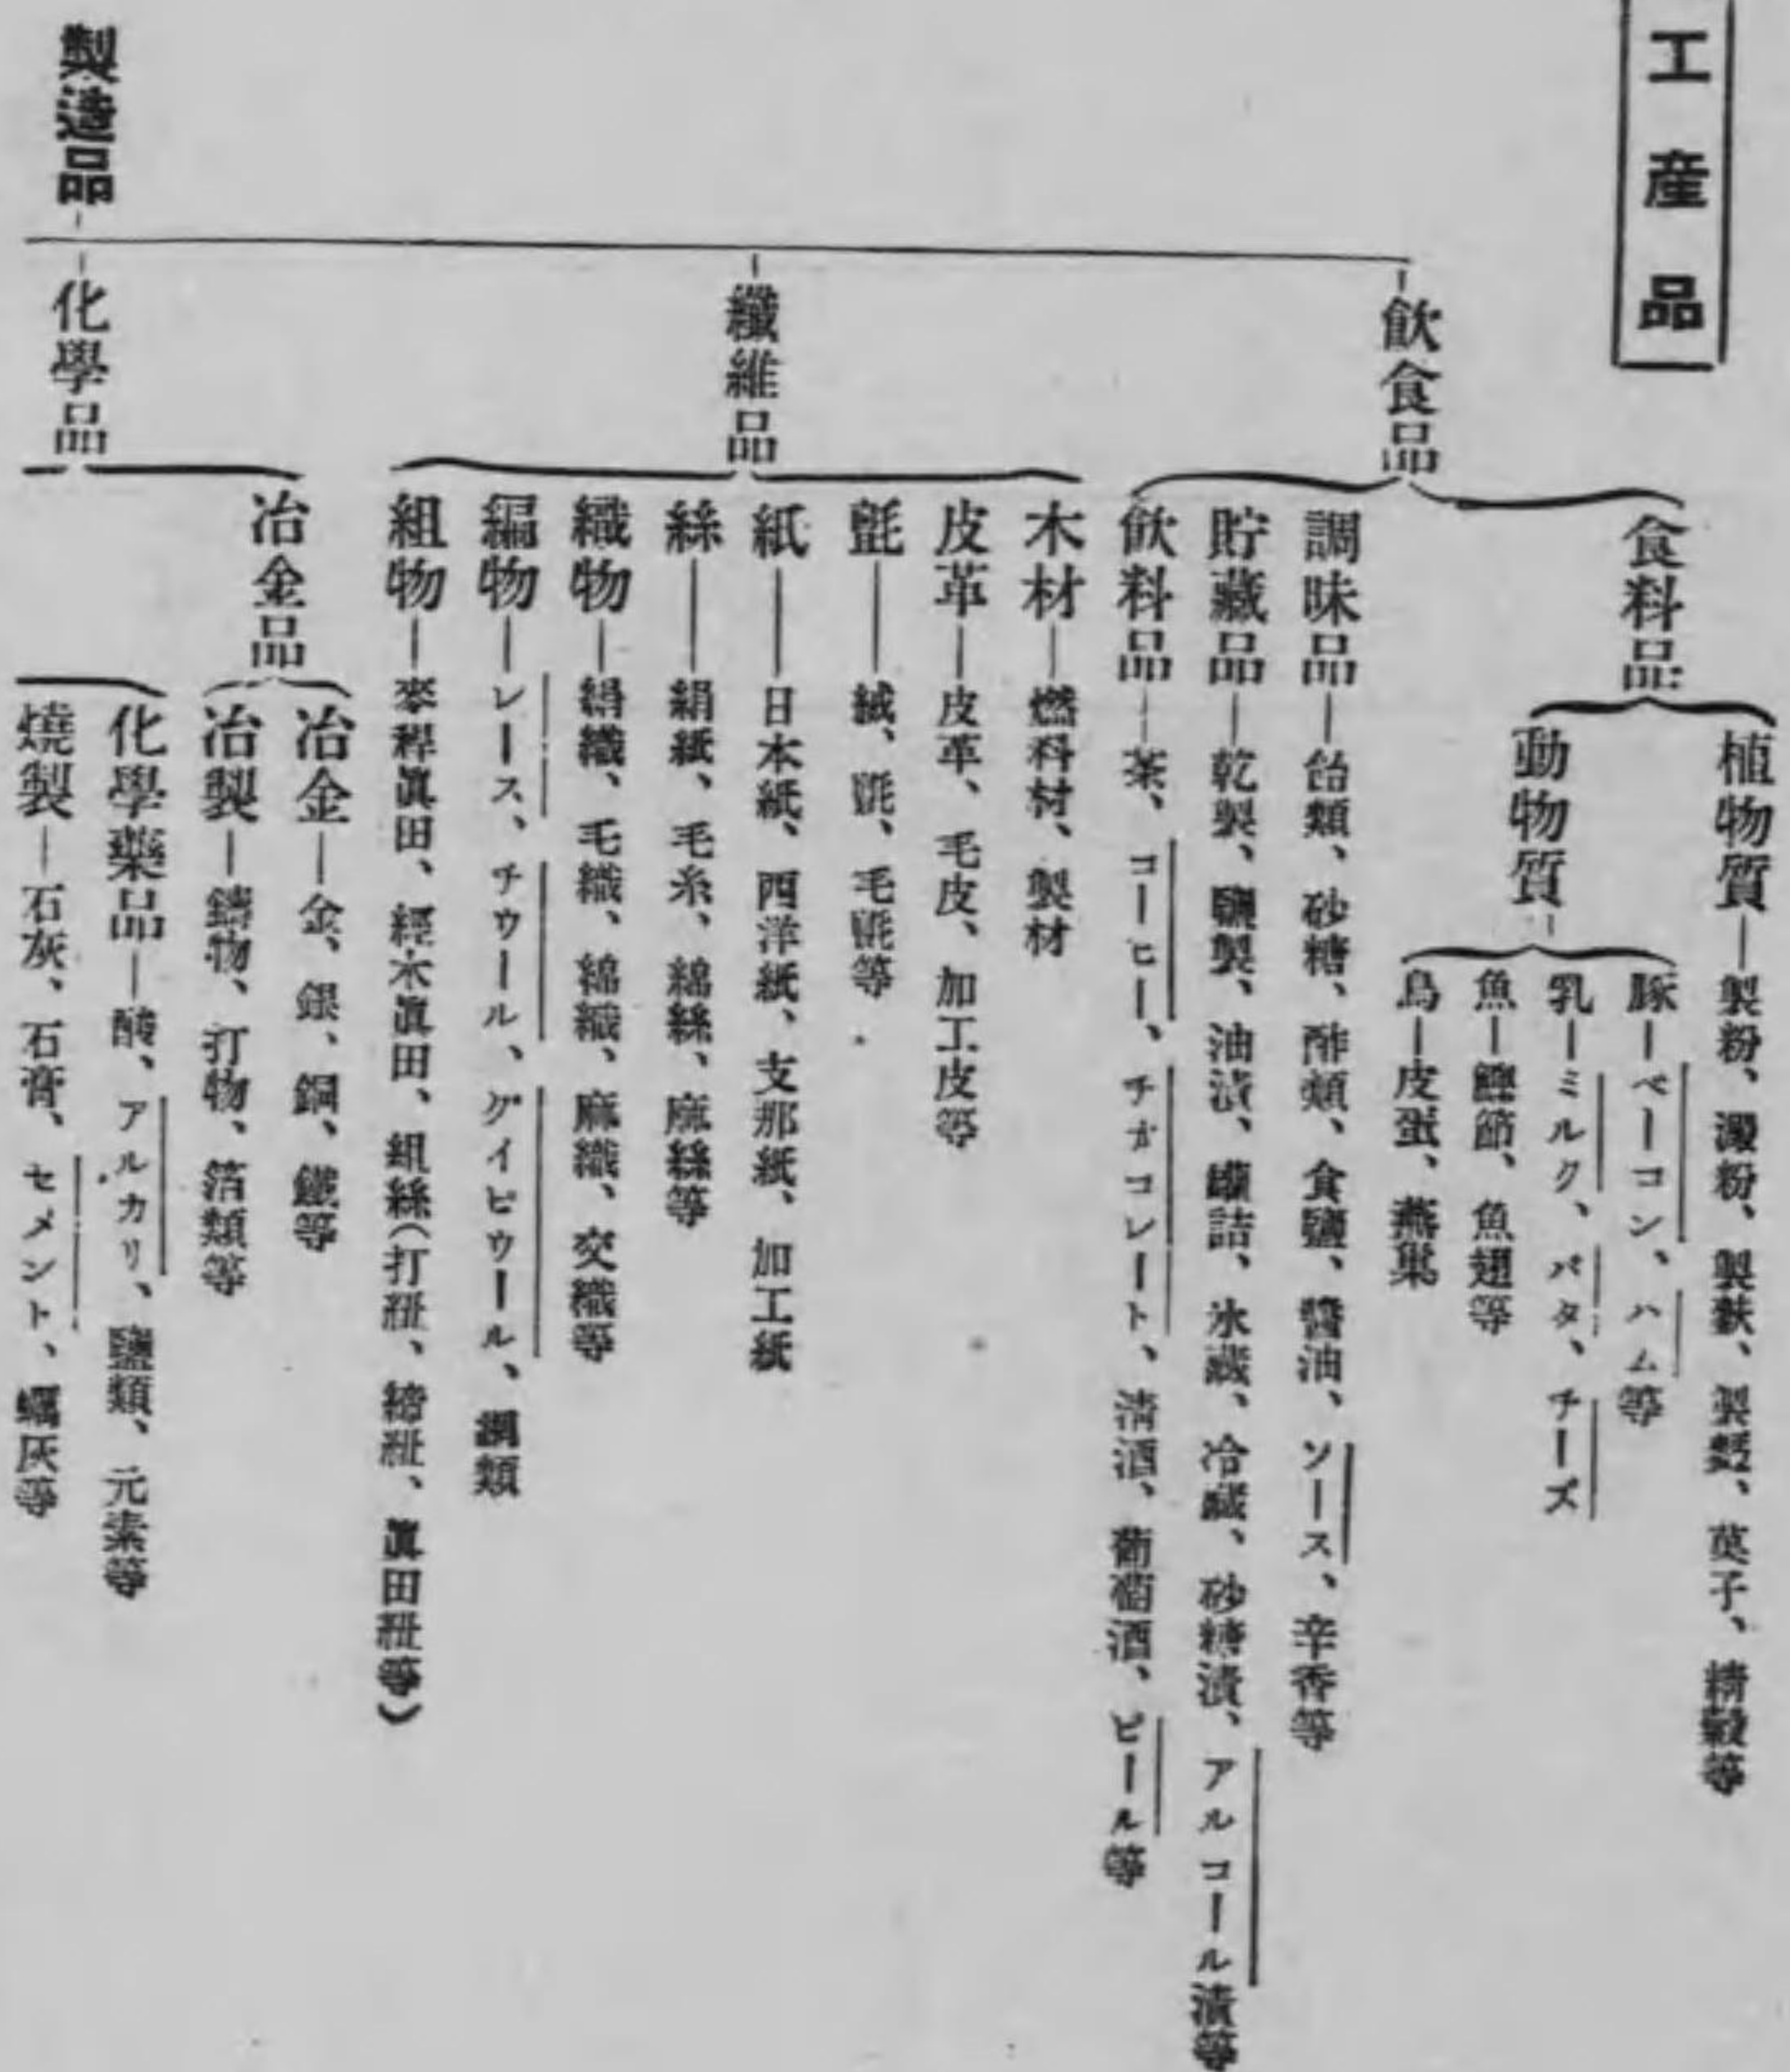 工産品
製造品
飲食品
食料品
植物質―製粉、澱粉、製麩、製麵、菓子、精穀等
動物質
豚―ベーコン、ハム等
乳―ミルク、バタ、チーズ
魚―鰹節、魚翅等
鳥―皮蛋、燕巣
調味品―飴類、砂糖、酢類、食鹽、醬油、ソース、辛香等
貯藏品―乾製、鹽製、油漬、罐詰、氷藏、冷藏、砂糖漬、アルコール漬等
飲料品―茶、コーヒー、チヨコレート、淸酒、葡萄酒、ビール等
纖維品
木材―燃料材、製材
皮革―皮革、毛皮、加工皮等
氈―絨、氈、毛氈等
紙―日本紙、西洋紙、支那紙、加工紙
絲―絹紙、毛糸、綿絲、麻絲等
織物―絹織、毛織、綿織、麻織、交織等
編物―レース、チウール、ゲイピウール、網類
組物―麥稈眞田、經木眞田、組絲(打紐、紐、眞田紐等)
化學品
冶金品
冶金―金、銀、銅、鐵等
冶製―鑄物、打物、箔類等
化學藥品―酸、アルカリ、鹽類、元素等
燒製―石灰、石膏、セメント、蠣灰等